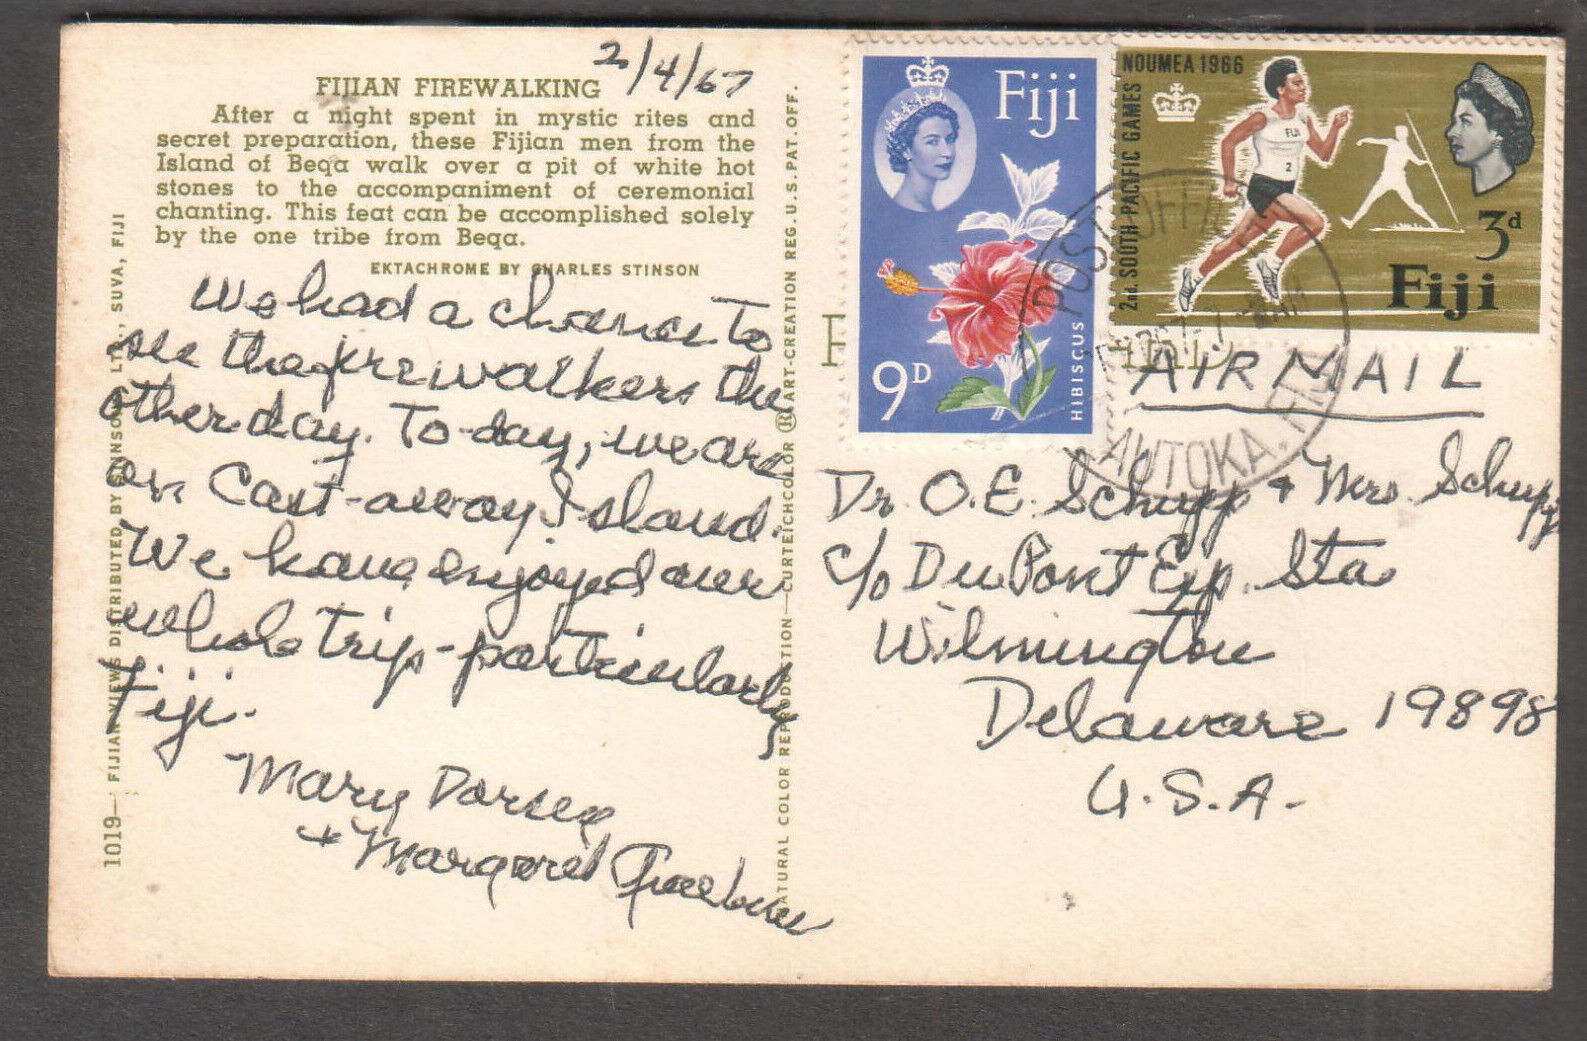 2/4/67
FIJIAN FIREWALKING
After a night spent in mystic rites and
secret preparation, these Fijian men from the
Island of Beqa walk over a pit of white hot
stones to the accompaniment of ceremonial
chanting. This feat can be accomplished solely
by the one tribe from Beqa.
EKTACHROME BY CHARLES STINSON
We had a chance to
see the firewalkers the
other day. To-day, we are
on Cast-away Island.
We have enjoyed our
whole trip - particularly
Fiji.
Mary Dorsey
+ Margaret
1019— FIJIAN VIEWS DISTRIBUTED BY STINSONS LTD., SUVA, FIJI
NATURAL COLOR REPRODUCTION—CURTEICHCOLOR ® ART-CREATION REG. U.S. PAT. OFF.
Fiji
9D
HIBISCUS
NOUMEA 1966
2nd. SOUTH PACIFIC GAMES
FIJI
2
3d
Fiji
POST OFFICE
LAUTOKA, FIJI
AIR MAIL
Dr. O.E. Schupp + Mrs. Schupp
c/o Du Pont Exp. Sta
Wilmington
Delaware 19898
U.S.A.